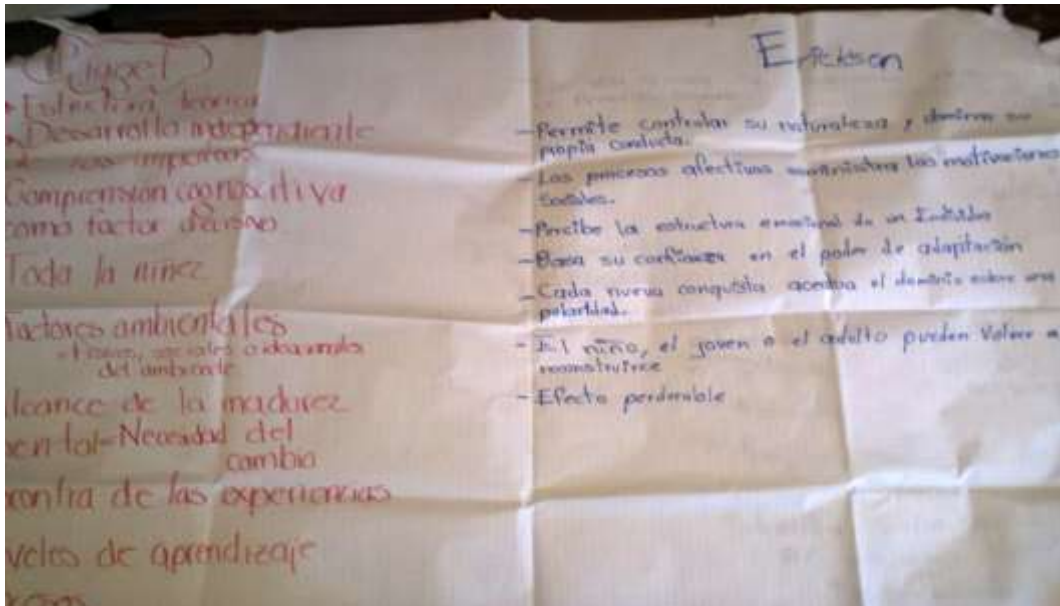 Piaget
Desarrollo independiente
Comprensión cognoscitiva
como factor decisivo
Toda la niñez
Factores ambientales
del ambiente
alcance de la madurez
mental-Necesidad del
cambio
contra de las experiencias
veles de aprendizaje
Erickson
-Permite controlar su naturaleza y domina su
propia conducta.
-Los procesos afectivos suministra las motivaciones
Sociales.
-Percibe la estructura emocional de un Individuo
-Basa su confianza en el poder de adaptación
-Cada nueva conquista acentua el dominio sobre una
polaridad.
- El niño, el joven o el adulto pueden Volver a
reconstruirce
-Efecto perdurable